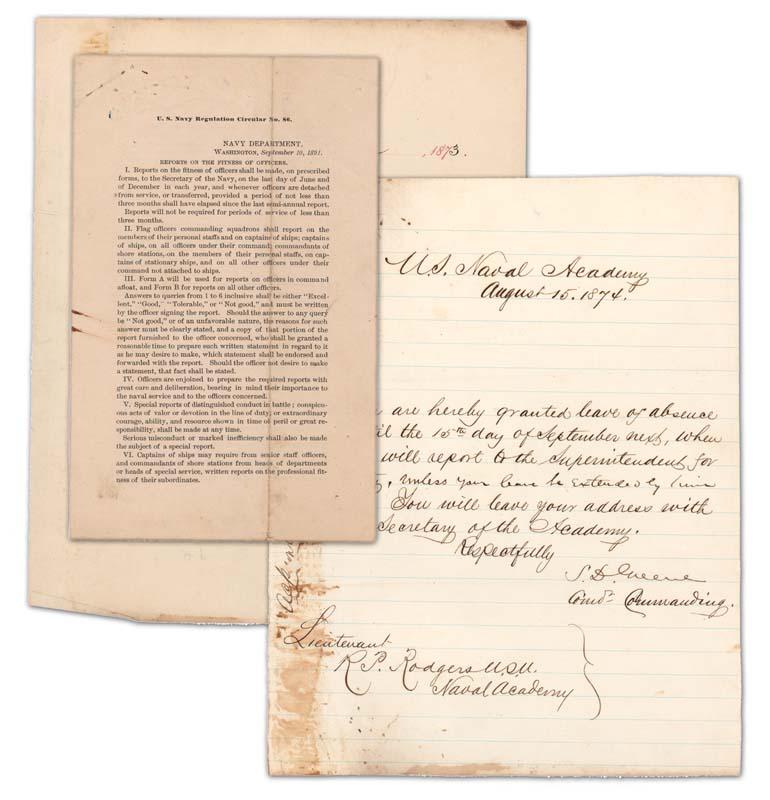 U. S. Navy Regulation Circular No. 86.
NAVY DEPARTMENT,
WASHINGTON, September 10, 1891.
REPORTS ON THE FITNESS OF OFFICERS.
I. Reports on the fitness of officers shall be made, on prescribed
forms, to the Secretary of the Navy, on the last day of June and
of December in each year, and whenever officers are detached
from service, or transferred, provided a period of not less than
three months shall have elapsed since the last semi-annual report.
Reports will not be required for periods of service of less than
three months.
II. Flag officers commanding squadrons shall report on the
members of their personal staffs and on captains of ships; captains
of ships, on all officers under their command; commandants of
shore stations, on the members of their personal staffs, on cap-
tains of stationary ships, and on all other officers under their
command not attached to ships.
III. Form A will be used for reports on officers in command
afloat, and Form B for reports on all other officers.
Answers to queries from 1 to 6 inclusive shall be either "Excel-
lent," "Good," "Tolerable," or "Not good," and must be written
by the officer signing the report. Should the answer to any query
be "Not good," or of an unfavorable nature, the reasons for such
answer must be clearly stated, and a copy of that portion of the
report furnished to the officer concerned, who shall be granted a
reasonable time to prepare such written statement in regard to it
as he may desire to make, which statement shall be endorsed and
forwarded with the report. Should the officer not desire to make
a statement, that fact shall be stated.
IV. Officers are enjoined to prepare the required reports with
great care and deliberation, bearing in mind their importance to
the naval service and to the officers concerned.
V. Special reports of distinguished conduct in battle; conspicu-
ous acts of valor or devotion in the line of duty; or extraordinary
courage, ability, and resource shown in time of peril or great re-
sponsibility, shall be made at any time.
Serious misconduct or marked inefficiency shall also be made
the subject of a special report.
VI. Captains of ships may require from senior staff officers,
and commandants of shore stations from heads of departments
or heads of special service, written reports on the professional fit-
ness of their subordinates.
, 1873.
U.S. Naval Academy
August 15. 1874.
are hereby granted leave of absence
the 15th day of September next, when
will report to the Superintendent for
, unless your leave be extended by him
You will leave your address with
Secretary of the Academy.
Respectfully
S. D. Greene
Comdr Commanding.
Lieutenant
R. P. Rodgers U.S.N.
Naval Academy